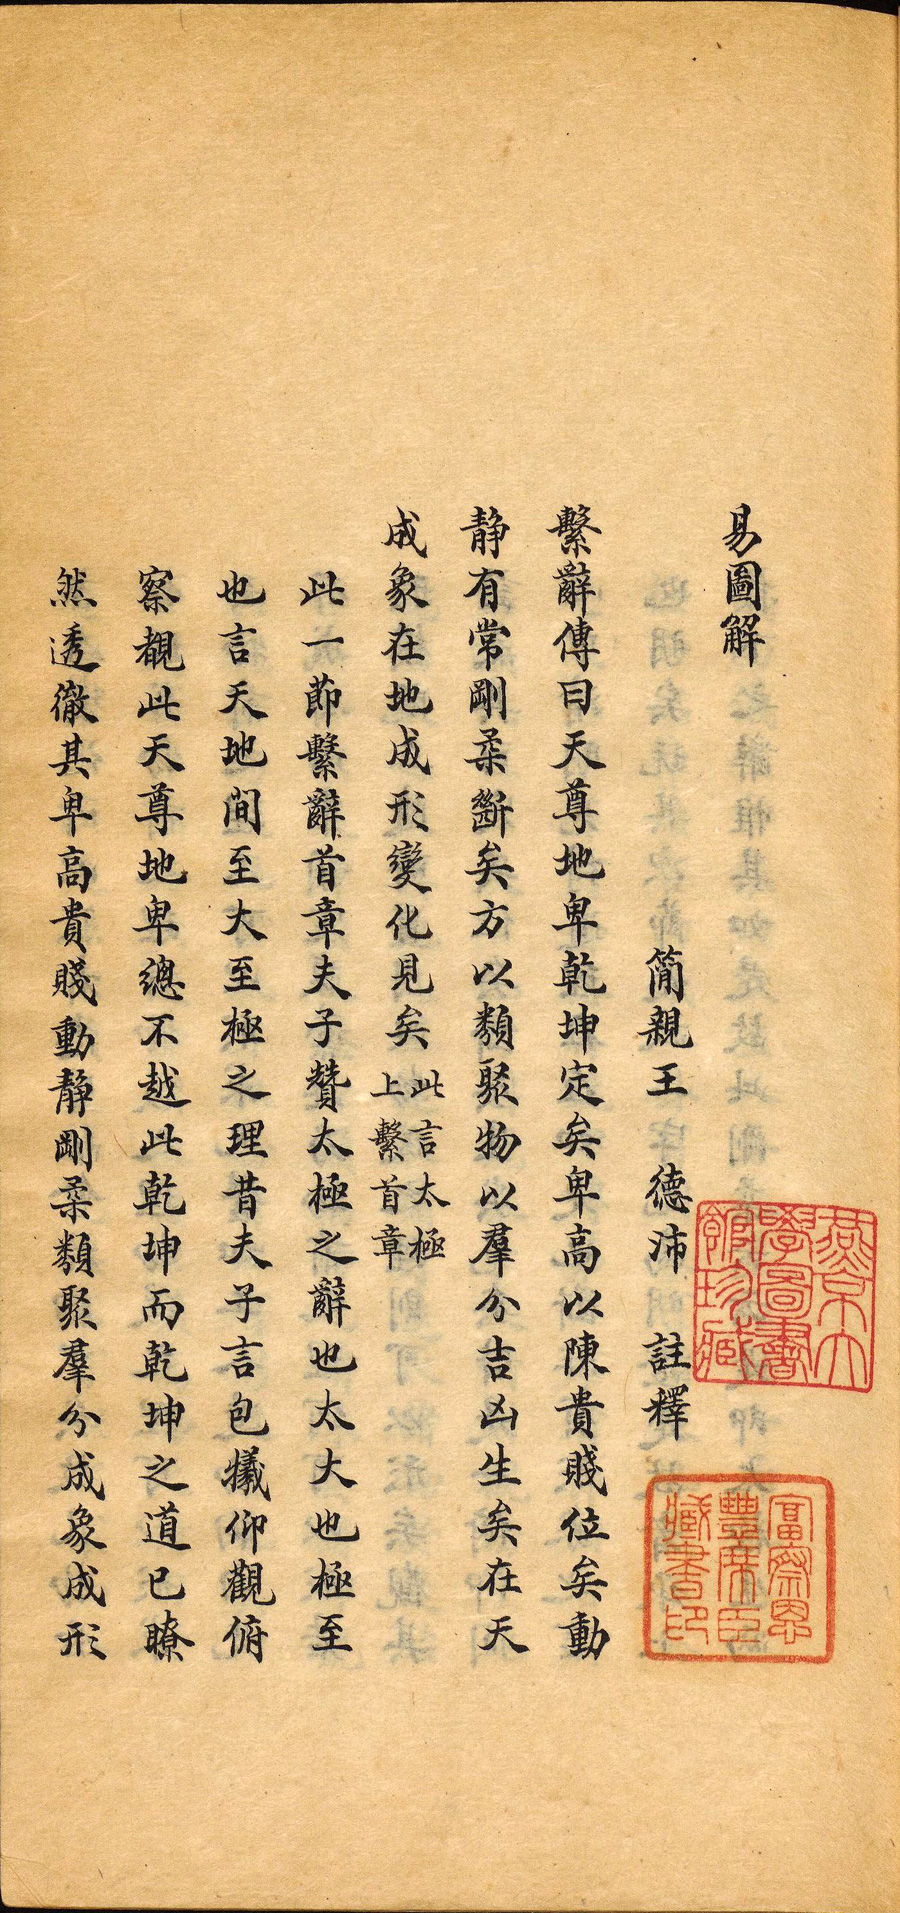 易圖解
簡親王 德沛 註釋
繫辭傳曰天尊地卑乾坤定矣卑高以陳貴賤位矣動
靜有常剛柔斷矣方以類聚物以羣分吉凶生矣在天
成象在地成形變化見矣
此言太極
上繫首章
此一節繫辭首章夫子贊太極之辭也太大也極至
也言天地間至大至極之理昔夫子言包犧仰觀俯
察覩此天尊地卑總不越此乾坤而乾坤之道已瞭
然透徹其卑高貴賤動靜剛柔類聚羣分成象成形
燕京大
學圖書
館珍藏
富察恩
豐席臣
藏書印